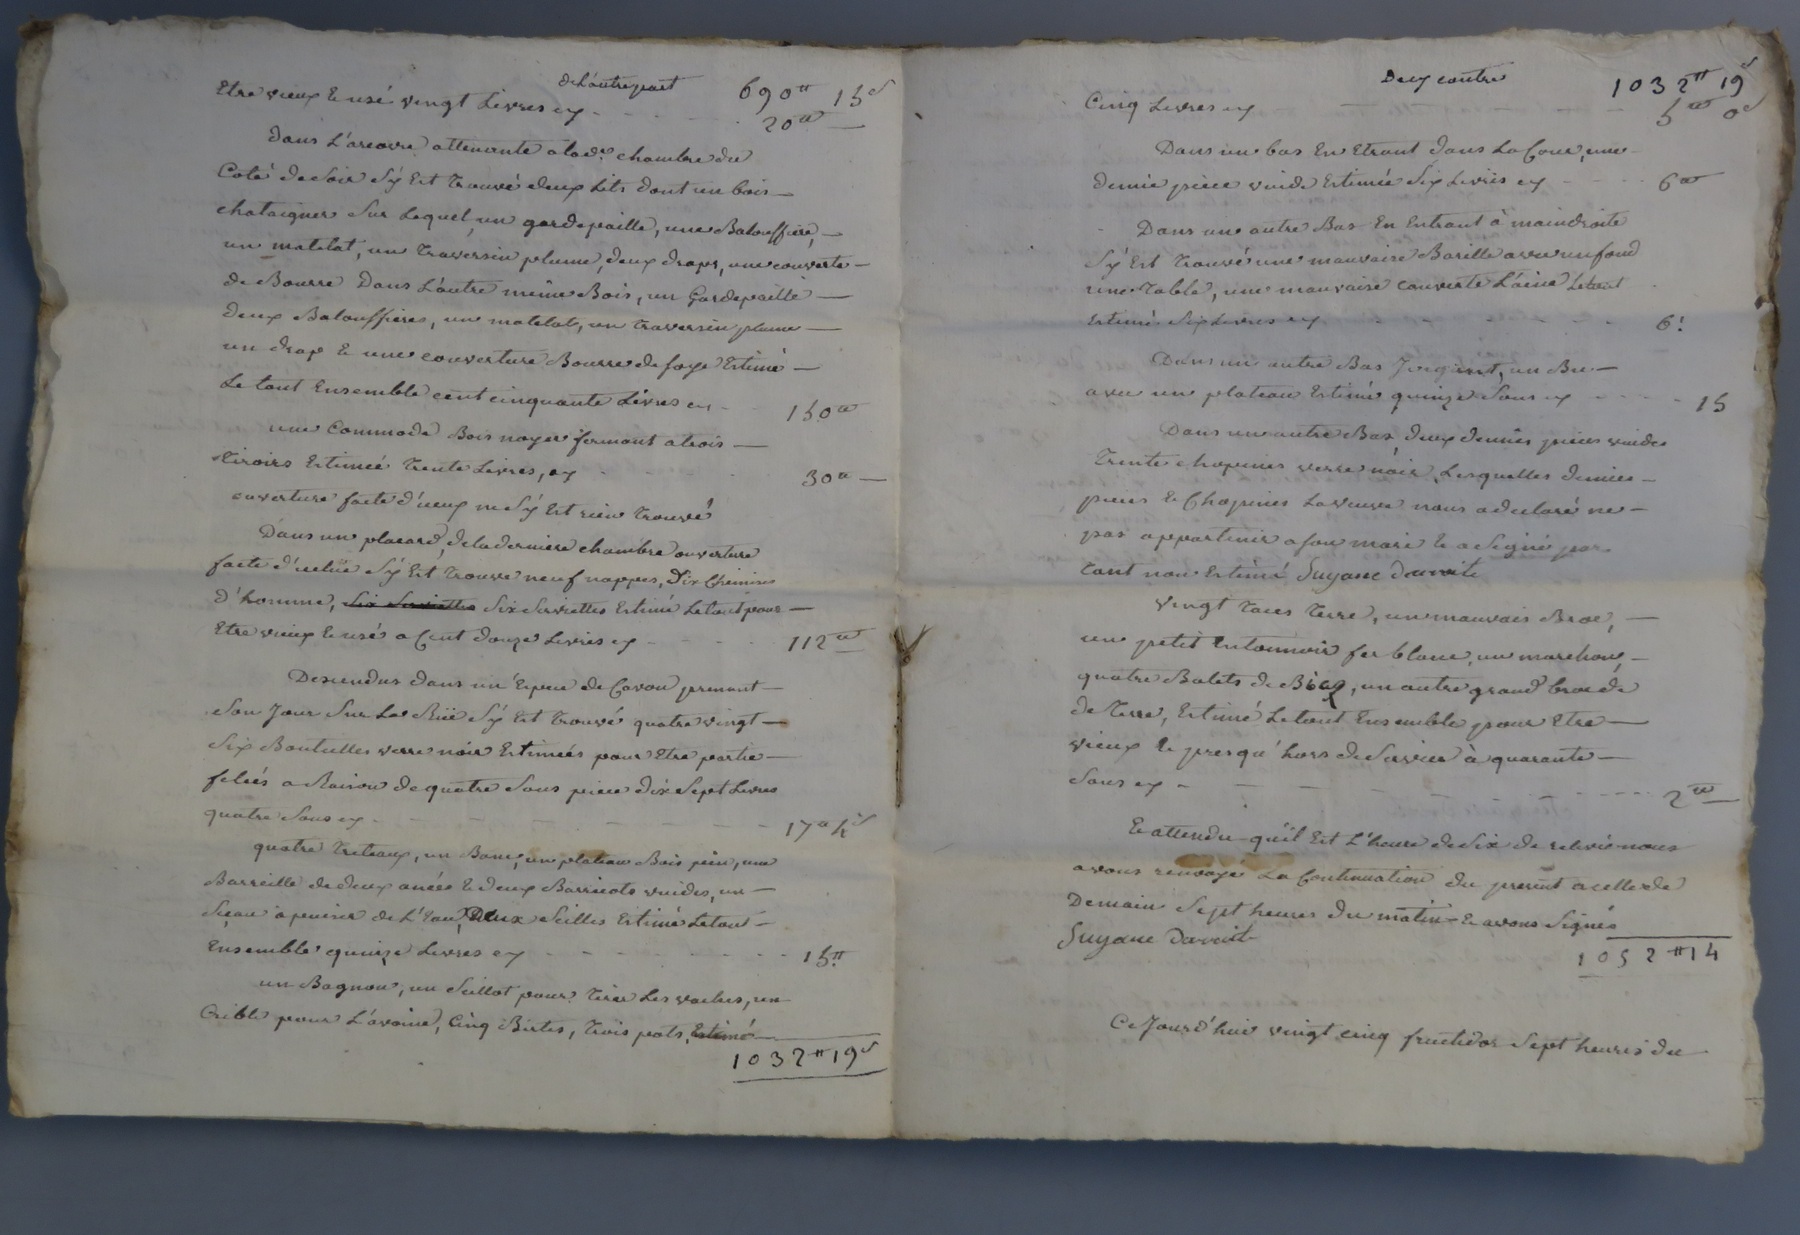 de L'autre part 690tt 15s
Etre vieux & usé vingt Livres cy - - - - 20tt —
Dans L'arcove attenante a lade. chambre du
Coté de Soir S'y Est Trouvé deux Lits dont un bois —
chataigner Sur Lequel un gardepaille, une Balouffiere, —
un matelat, un Traversin plume, deux draps, une couverte —
de Bourre Dans L'autre même Bois, un Gardepaille —
deux Balouffieres, un matelat, un Traversin plume —
un drap & une couverture Bourre de soye Estimé —
Le tout Ensemble cent cinquante Livres cy - 150tt
une Commode Bois noyer fermant a trois —
tiroirs Estimeé Trente Livres, cy - - - - 30tt —
ouverture faite d'iceux ne S'y Est rien Trouvé
Dans un placard, de la derniere chambre ouverture
faite d'icelüe S'y Est Trouve neuf nappes, Dix Chemises
D'homme, Six Serviettes Six Serviettes Estimé Le tout pour —
Etre vieux & usé a Cent douze Livres cy - - - - 112tt
Descendus dans un Espece de Cavon prenant —
Son Jour Sur La Rüe S'y Est Trouvé quatre vingt —
Six Bouteilles verre noir Estimeés pour Etre partie —
feleés a Raison de quatre Sous piece dix Sept Livres
quatre Sous cy - - - - - - - 17tt 4s
quatre Treteaux, un Banc, un plateau Bois pin, une
Barreille de deux anées & deux Barricots vuides, un —
Seau a puiser de L'Eau, Deux Seilles Estimé Le tout —
Ensemble quinze Livres cy - - - - - - - 15tt
un Bagnon, un Seillot pour Tirer Les vaches, un
Crible pour L'avoine, Cinq Birtes, Trois pots, Estimé —
1032tt 19s
De cy contre 1032tt 19s
Cinq Livres cy - - - - 5tt 0s
Dans un bas En Etrant dans La Cour, une —
demie piece vuide Estimée Six Livres cy - - - 6tt
Dans un autre Bas En Entrant à main droite
S'y Est Trouvé une mauvaise Bareille avec un fond
une Table, une mauvaise couverte Laine Le tout
Estimé Six Livres cy - - - - - - - 6!
Dans un autre Bas Joignant, un Bu —
avec un plateau Estimé quinze Sous cy - - - - 15
Dans un autre Bas deux demies pieces vuides
Trente chopines verre noir, Lesquelles demies —
pieces & Chopines La veuve nous a declaré ne —
pas appartenir a son mari & a Signé par
Tant non Estimé Suzane davait
vingt Taces Terre, un mauvais Broc, —
un petit Entonnoir fer blanc, un marchon, —
quatre Balets de Biez, un autre grand broc de
de Terre, Estimé Le tout Ensemble pour Etre —
vieux & presqu'hors de Service à quarante —
Sous cy - - - - - - - - - 2tt
Et attendu qu'il Est L'heure de Six de relevé nous
avons renvoyé La Continuation du present a celle de
Demain Sept heures du matin & avons Signés
Suzane davait
1052tt 14
Ce Jourd'hui vingt cinq fructidor Sept heures du